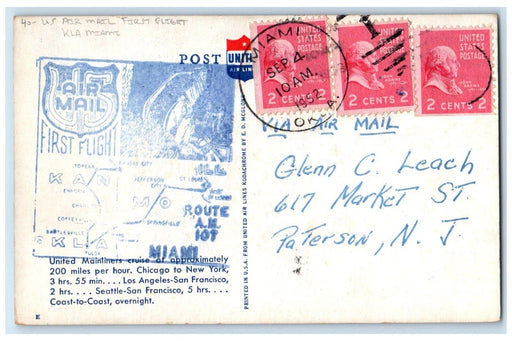 40- US AIR MAIL FIRST FLIGHT
KLA MIAMI
POST
UNITED
AIR LINES
MIAMI
SEP 4
10 AM
1952
OKLA.
UNITED STATES POSTAGE
2 CENTS 2
UNITED STATES POSTAGE
2 CENTS 2
UNITED STATES POSTAGE
2 CENTS 2
US
AIR
MAIL
FIRST FLIGHT
TOPEKA
JEFFERSON CITY
ST. LOUIS
KAN
EMPORIA
MO
COFFEYVILLE
SPRINGFIELD
BARTLESVILLE
OKLA
TULSA
ROUTE
A.M.
107
MIAMI
VIA AIR MAIL
Glenn C. Leach
617 Market St.
Paterson, N. J.
United Mainliners cruise at approximately
200 miles per hour. Chicago to New York,
3 hrs. 55 min. . . . Los Angeles-San Francisco,
2 hrs. . . . Seattle-San Francisco, 5 hrs. . . .
Coast-to-Coast, overnight.
E
PRINTED IN U.S.A. FROM UNITED AIR LINES KODACHROME BY E. D. McGLONE